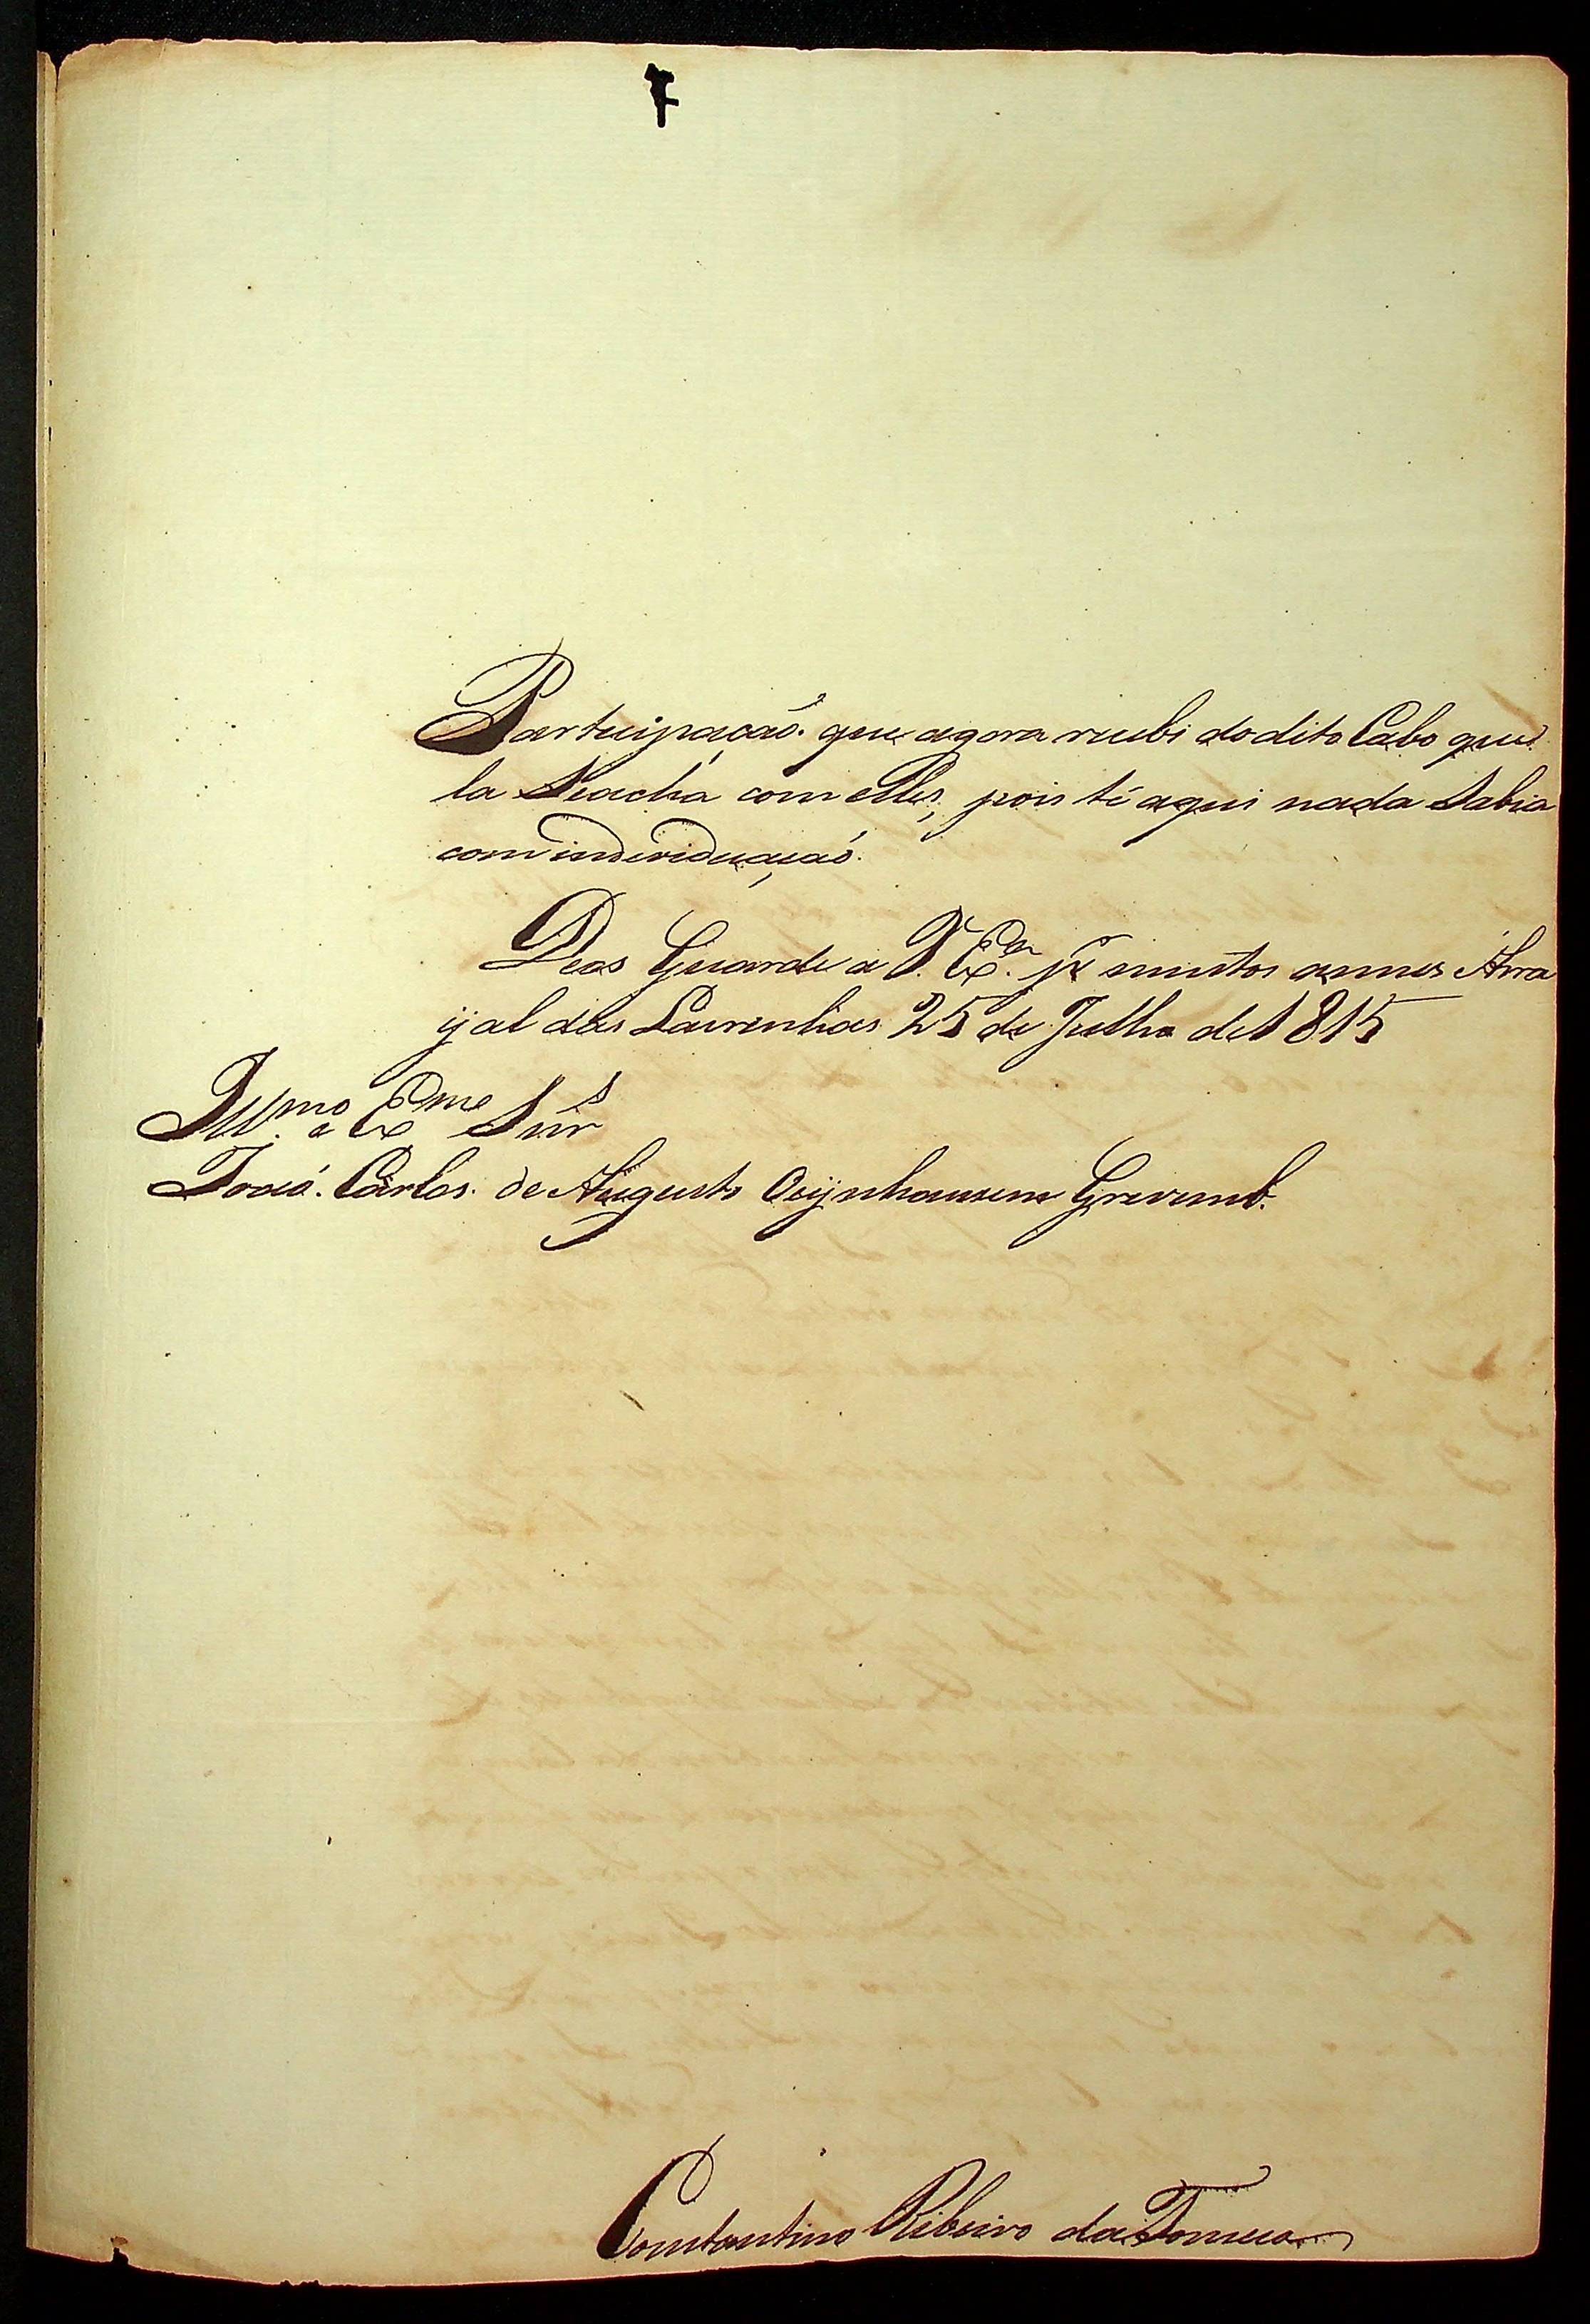 Participaçaõ. que agora recibi do dito Cabo que
la Seacha com elles, pois té aqui nada Sabia
com individuaçaõ.
Deos Guarde a V. Exª. pr muitos annos Arra
yal das Lavrinhas 25 de Julho de 1815
Illmo. e Exmo Snr
Joaõ. Carlos. de Augusto Oeynhausen Gravemb.
Constantino Ribeiro da Fonseca